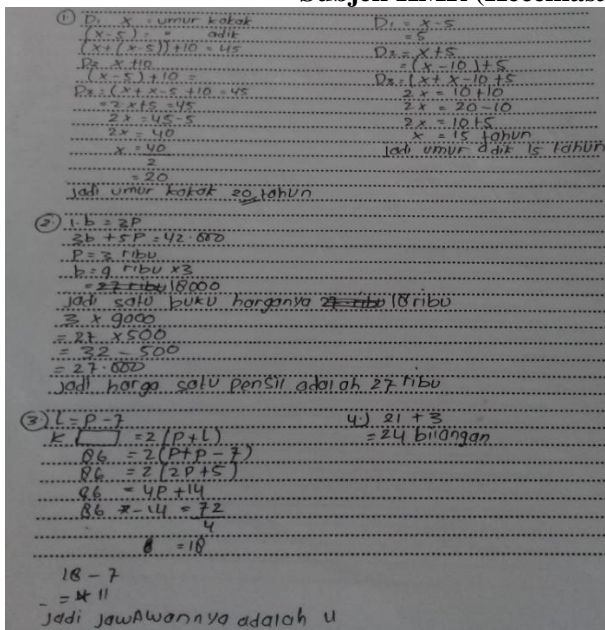 ① D1 x = umur kakak
(x-5) = " adik
(x+(x-5))+10 = 45
D2 x+10
(x-5)+10 =
D3 = (x+x-5+10 = 45
= 2x+5 = 45
2x = 45-5
2x = 40
x = 40
2
= 20
Jadi umur kakak 20 tahun
D1 = x-5
= 5
D2 = x+5
= (x-10)+5
D3 = (x+x-10+5
2x = 10+10
2x = 20-10
2x = 10+5
x = 15 tahun
Jadi umur adik 15 tahun
② 1.b = 3P
3b +5P = 42.000
P = 3 ribu
b = 9 ribu x3
= 27 ribu 18000
Jadi satu buku harganya 27 ribu 18 ribu
3 x 9000
= 27 x500
= 32 - 500
= 27.000
Jadi harga satu pensil adalah 27 ribu
③ l = P-7
K = 2(P+l)
86 = 2(P+P-7)
86 = 2(2P+5)
86 = 4P+14
86 -14 = 72
4
= 18
18 - 7
= 11
Jadi jawAwannya adalah 11
4.) 21 + 3
= 24 bilangan